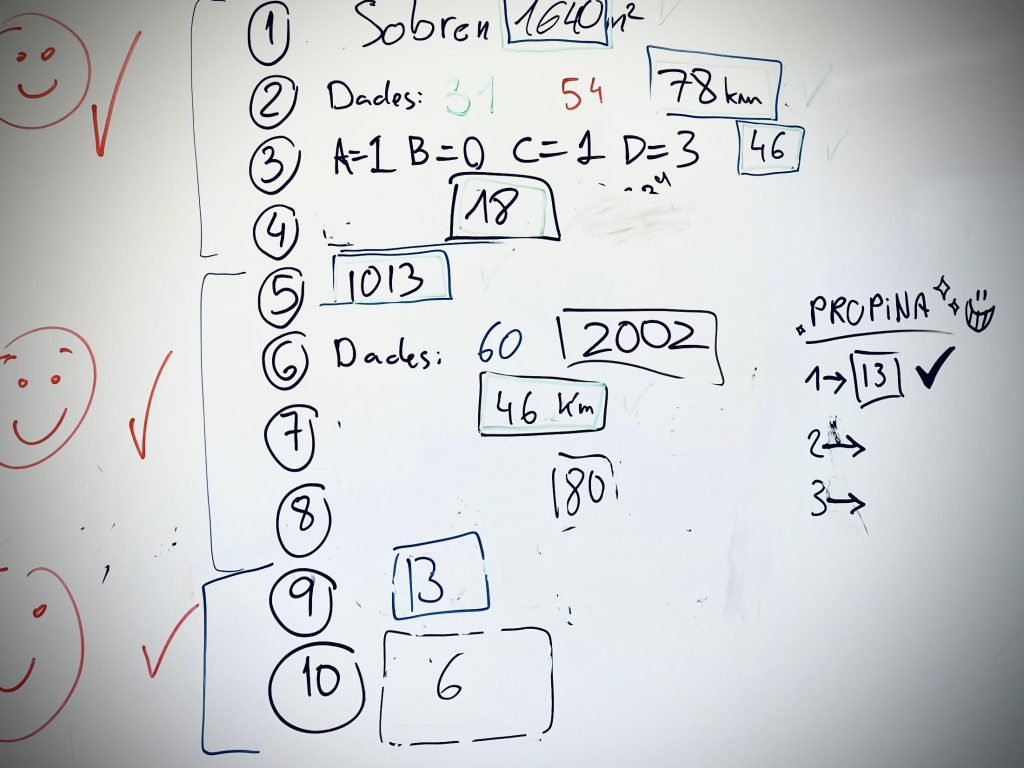 1 Sobren 1640 m²
2 Dades: 31 54 78 km
3 A=1 B=0 C=1 D=3 46
4 18
5 1013
6 Dades: 60 2002
7 46 Km
8 180
9 13
10 6
PROPINA
1→ 13 ✓
2→
3→